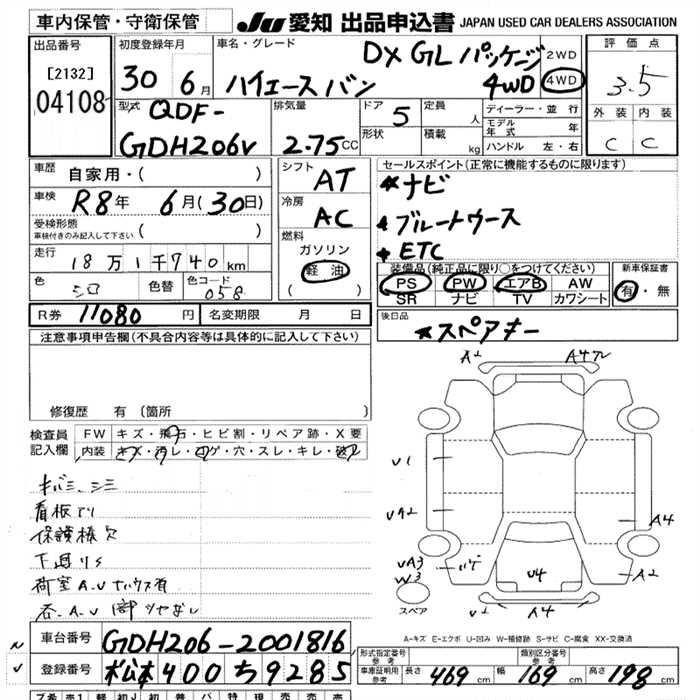 車内保管・守衛保管
JU 愛知 出品申込書 JAPAN USED CAR DEALERS ASSOCIATION
出品番号
[2132]
04108
初度登録年月
30年6月
車名・グレード
DX GL パッケージ
ハイエースバン 4WD
2WD
4WD
評価点
3.5
外装 内装
C C
型式
QDF-
GDH206V
排気量
2.75CC
ドア 5
形状
定員 人
積載 kg
ディーラー・並行
モデル年式 年
ハンドル 左・右
車歴 自家用・( )
車検 R8年 6月(30日)
受検形態
車検付きのみ記入して下さい ( )
走行 18万1千740km
色 シロ 色替 色コード 058
シフト AT
冷房 AC
燃料
ガソリン
軽油
( )
セールスポイント(正常に機能するものに限ります)
★ナビ
★ブルートゥース
★ETC
装備品(純正品に限り○をつけてください)
PS PW エアB AW
SR ナビ TV カワシート
新車保証書
有・無
R券 11080円 名変期限 月 日
後日品
★スペアキー
注意事項申告欄(不具合内容等は具体的に記入して下さい)
修復歴 有(箇所 )
検査員記入欄
FW キズ・飛石・ヒビ割・リペア跡・X要
内装 キズ・汚レ・コゲ・穴・スレ・キレ・破レ
キバミ、シミ
看板アリ
保護棒欠
下廻りS
荷室A.Uナハウス有
A2
A4ワレ
V1
VA2
A4
VA3
W3
U4
A2
A2
A4
スペア
A-キズ E-エクボ U-凹み W-補修跡 S-サビ C-腐食 XX-交換済
車台番号 GDH206-2001816
登録番号 松本400ち9285
形式指定番号
参考
類別区分番号
参考
車庫証明用
参考
長さ 469cm 幅 169cm 高さ 198cm